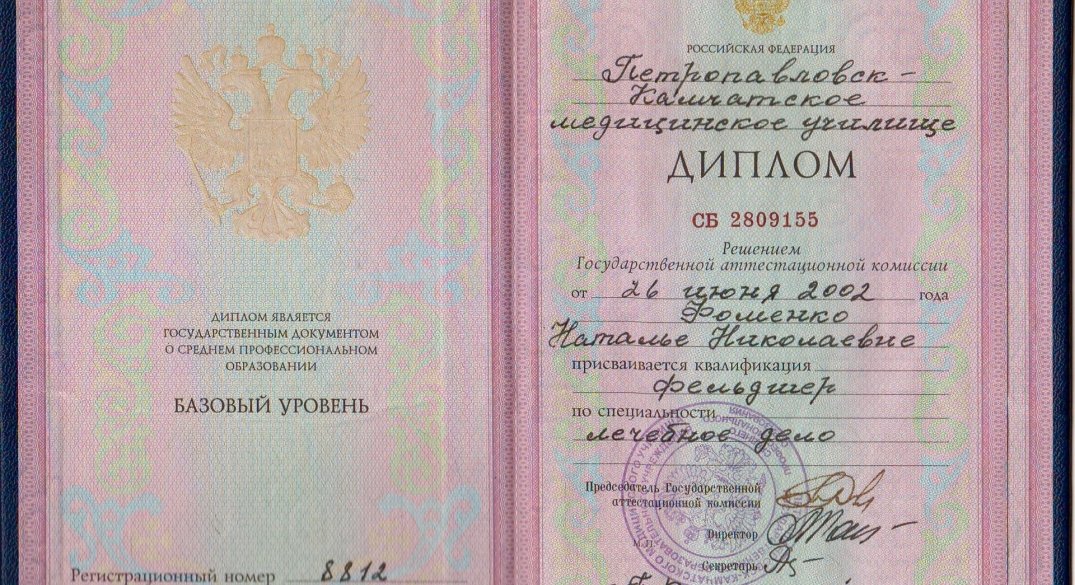 ДИПЛОМ ЯВЛЯЕТСЯ
ГОСУДАРСТВЕННЫМ ДОКУМЕНТОМ
О СРЕДНЕМ ПРОФЕССИОНАЛЬНОМ
ОБРАЗОВАНИИ
БАЗОВЫЙ УРОВЕНЬ
Регистрационный номер 8812
РОССИЙСКАЯ ФЕДЕРАЦИЯ
Петропавловск-
Камчатское
медицинское училище
ДИПЛОМ
СБ 2809155
Решением
Государственной аттестационной комиссии
от 26 июня 2002 года
Фоменко
Наталье Николаевне
присваивается квалификация
фельдшер
по специальности
лечебное дело
Председатель Государственной
аттестационной комиссии
Директор
М.П.
Секретарь